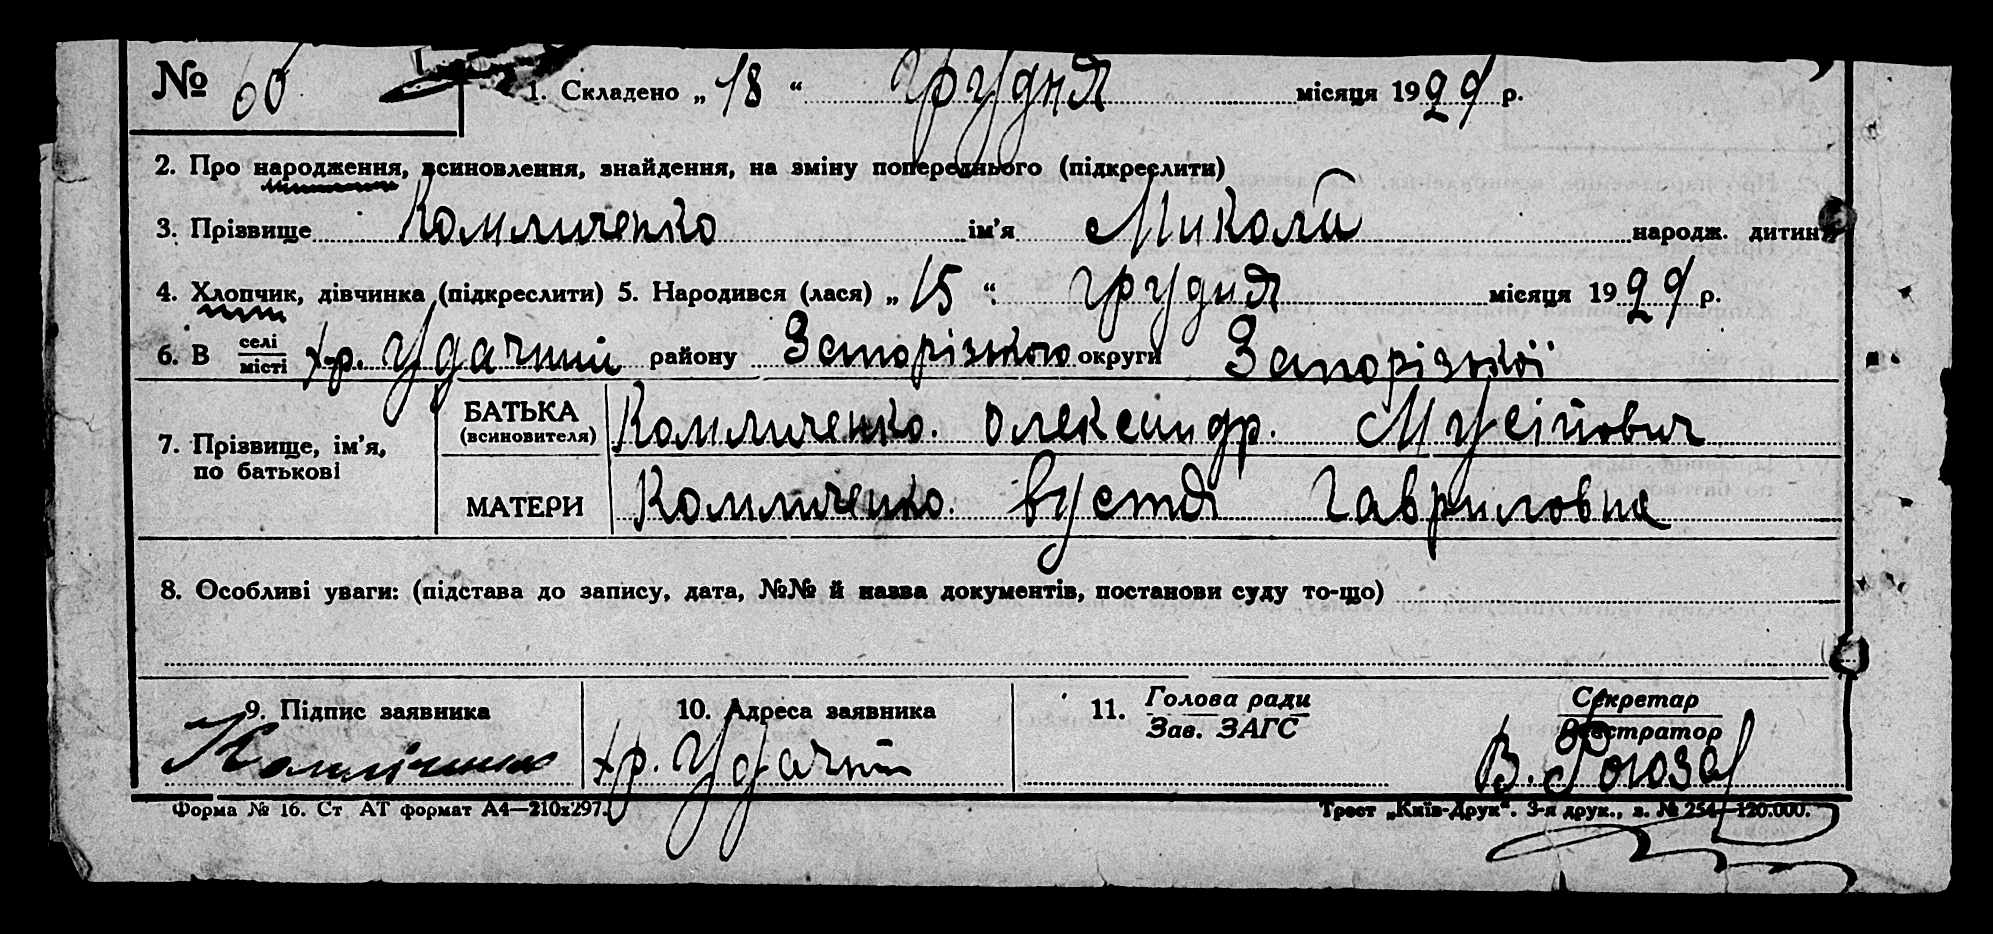 № 60 1. Складено „ 18 “ грудня місяця 1929 р.
2. Про народження, всиновлення, знайдення, на зміну попереднього (підкреслити)
3. Прізвище Комличенко ім'я Микола народж. дитини
4. Хлопчик, дівчинка (підкреслити) 5. Народився (лася) „ 15 “ грудня місяця 1929 р.
6. В селі/місті хр. Удачний району Запорізького округи Запорізької
7. Прізвище, ім'я, по батькові
БАТЬКА (всиновителя) Комличенко. Олександр. Мусійович
МАТЕРИ Комличенко. Вустя Гавриловна
8. Особливі уваги: (підстава до запису, дата, №№ й назва документів, постанови суду то-що)
9. Підпис заявника 10. Адреса заявника 11. Голова ради Секретар
Зав. ЗАГС Реєстратор
хр. Удачний В.
Форма № 16. Ст АТ формат А4—210х297. Трест „Київ-Друк“. 3-я друк., з. № 254—120.000.